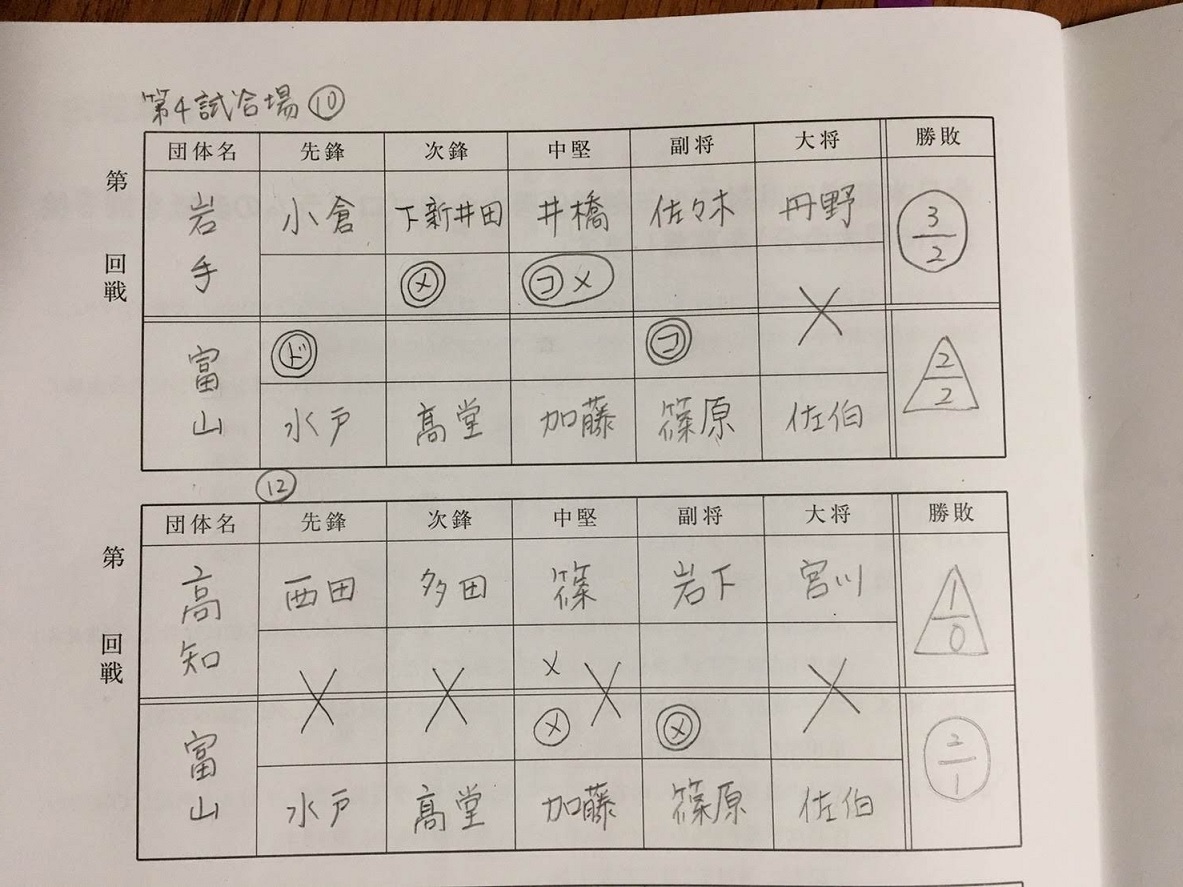 第4試合場 ⑩
第 回戦
団体名 先鋒 次鋒 中堅 副将 大将 勝敗
岩手 小倉 下新井田 井橋 佐々木 丹野 3/2
メ コメ
ド コ
富山 水戸 髙堂 加藤 篠原 佐伯 2/2
⑫
第 回戦
団体名 先鋒 次鋒 中堅 副将 大将 勝敗
高知 西田 多田 篠 岩下 宮川 1/0
メ
メ メ
富山 水戸 髙堂 加藤 篠原 佐伯 2/1